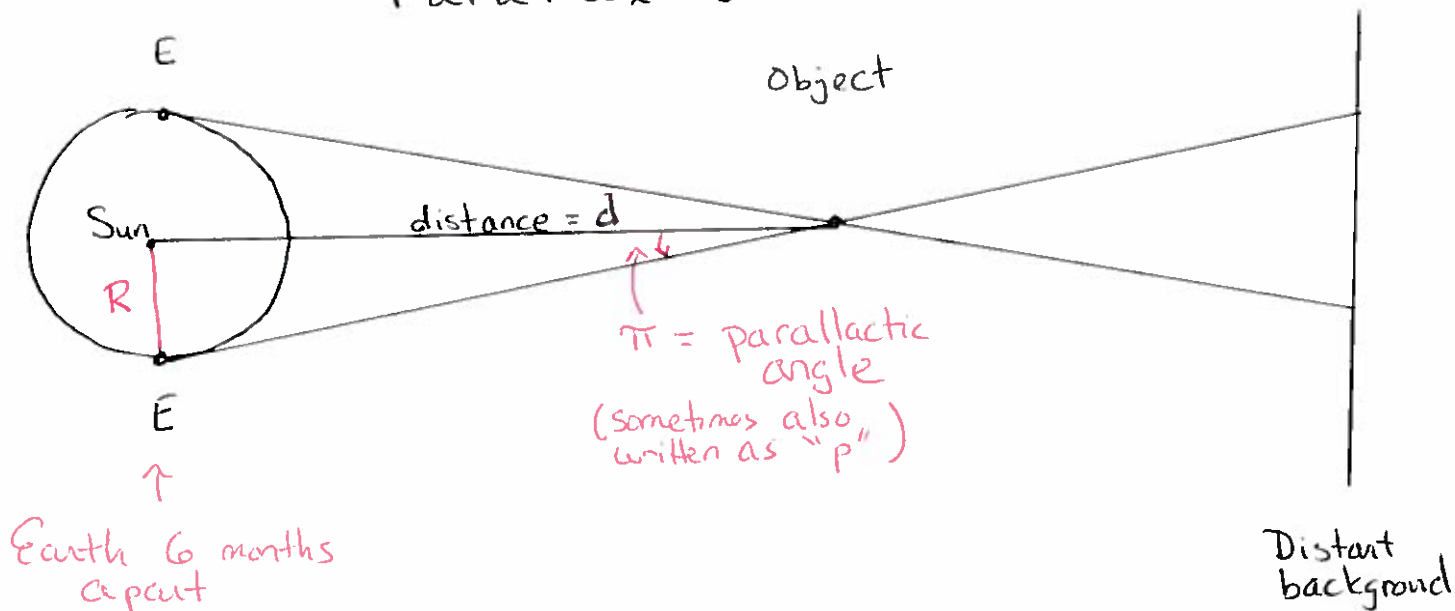 E
Object
Sun
distance = d
R
π = parallactic
angle
(sometimes also
written as "p")
E
Earth 6 months
apart
Distant
background